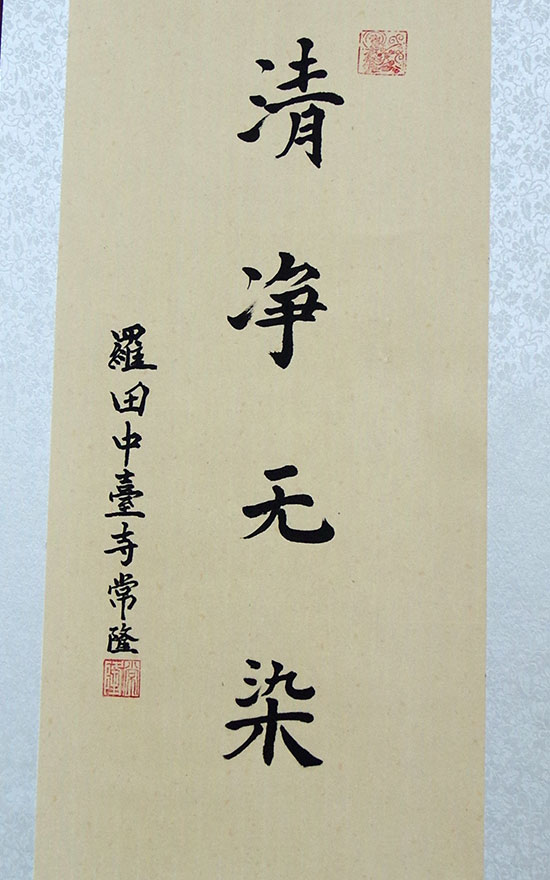 清净无染
羅田中臺寺常隆